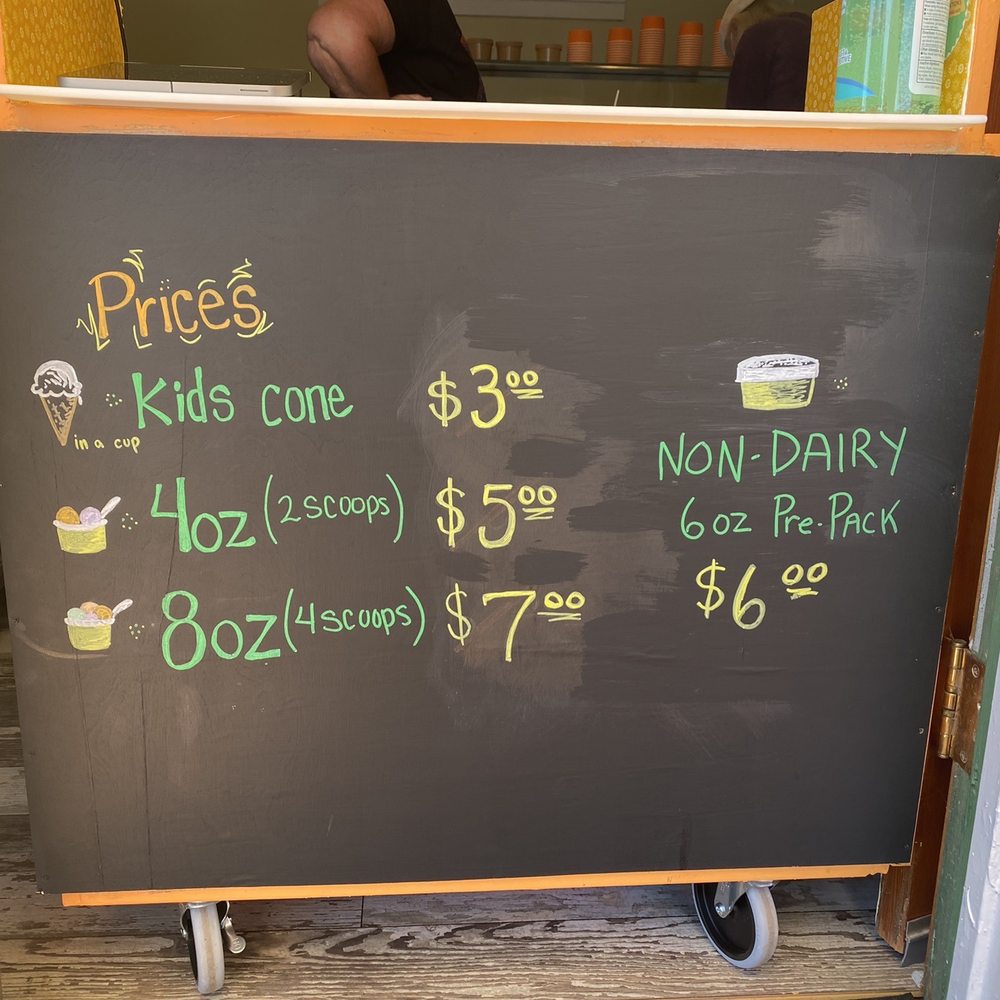 Prices
Kids cone $3.00
in a cup
4oz (2 scoops) $5.00
8oz (4 scoops) $7.00
NON-DAIRY
6oz Pre-PACK
$6.00